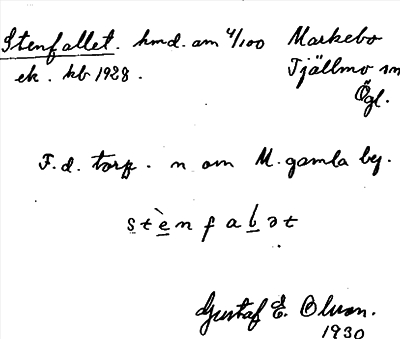 Stenfallet. hmd. am 4/100 Markebo
ek. kb 1928. Tjällmo sn
Ögl.
F.d. torp. n om M. gamla by.
stènfaḷət
Gustaf E. Olson.
1930